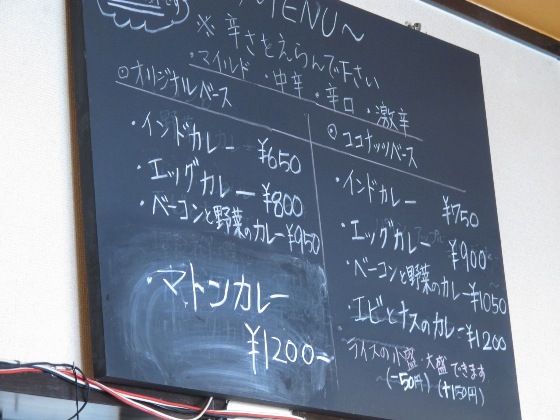 MENU〜
※辛さをえらんで下さい
・マイルド ・中辛 ・辛口 ・激辛
◎オリジナルベース
・インドカレー ¥650
・エッグカレー ¥800
・ベーコンと野菜のカレー ¥950
・マトンカレー
¥1200〜
◎ココナッツベース
・インドカレー ¥750
・エッグカレー ¥900
・ベーコンと野菜のカレー ¥1050
・エビとナスのカレー ¥1200
ライスの小盛・大盛できます
(-50円) (+150円)